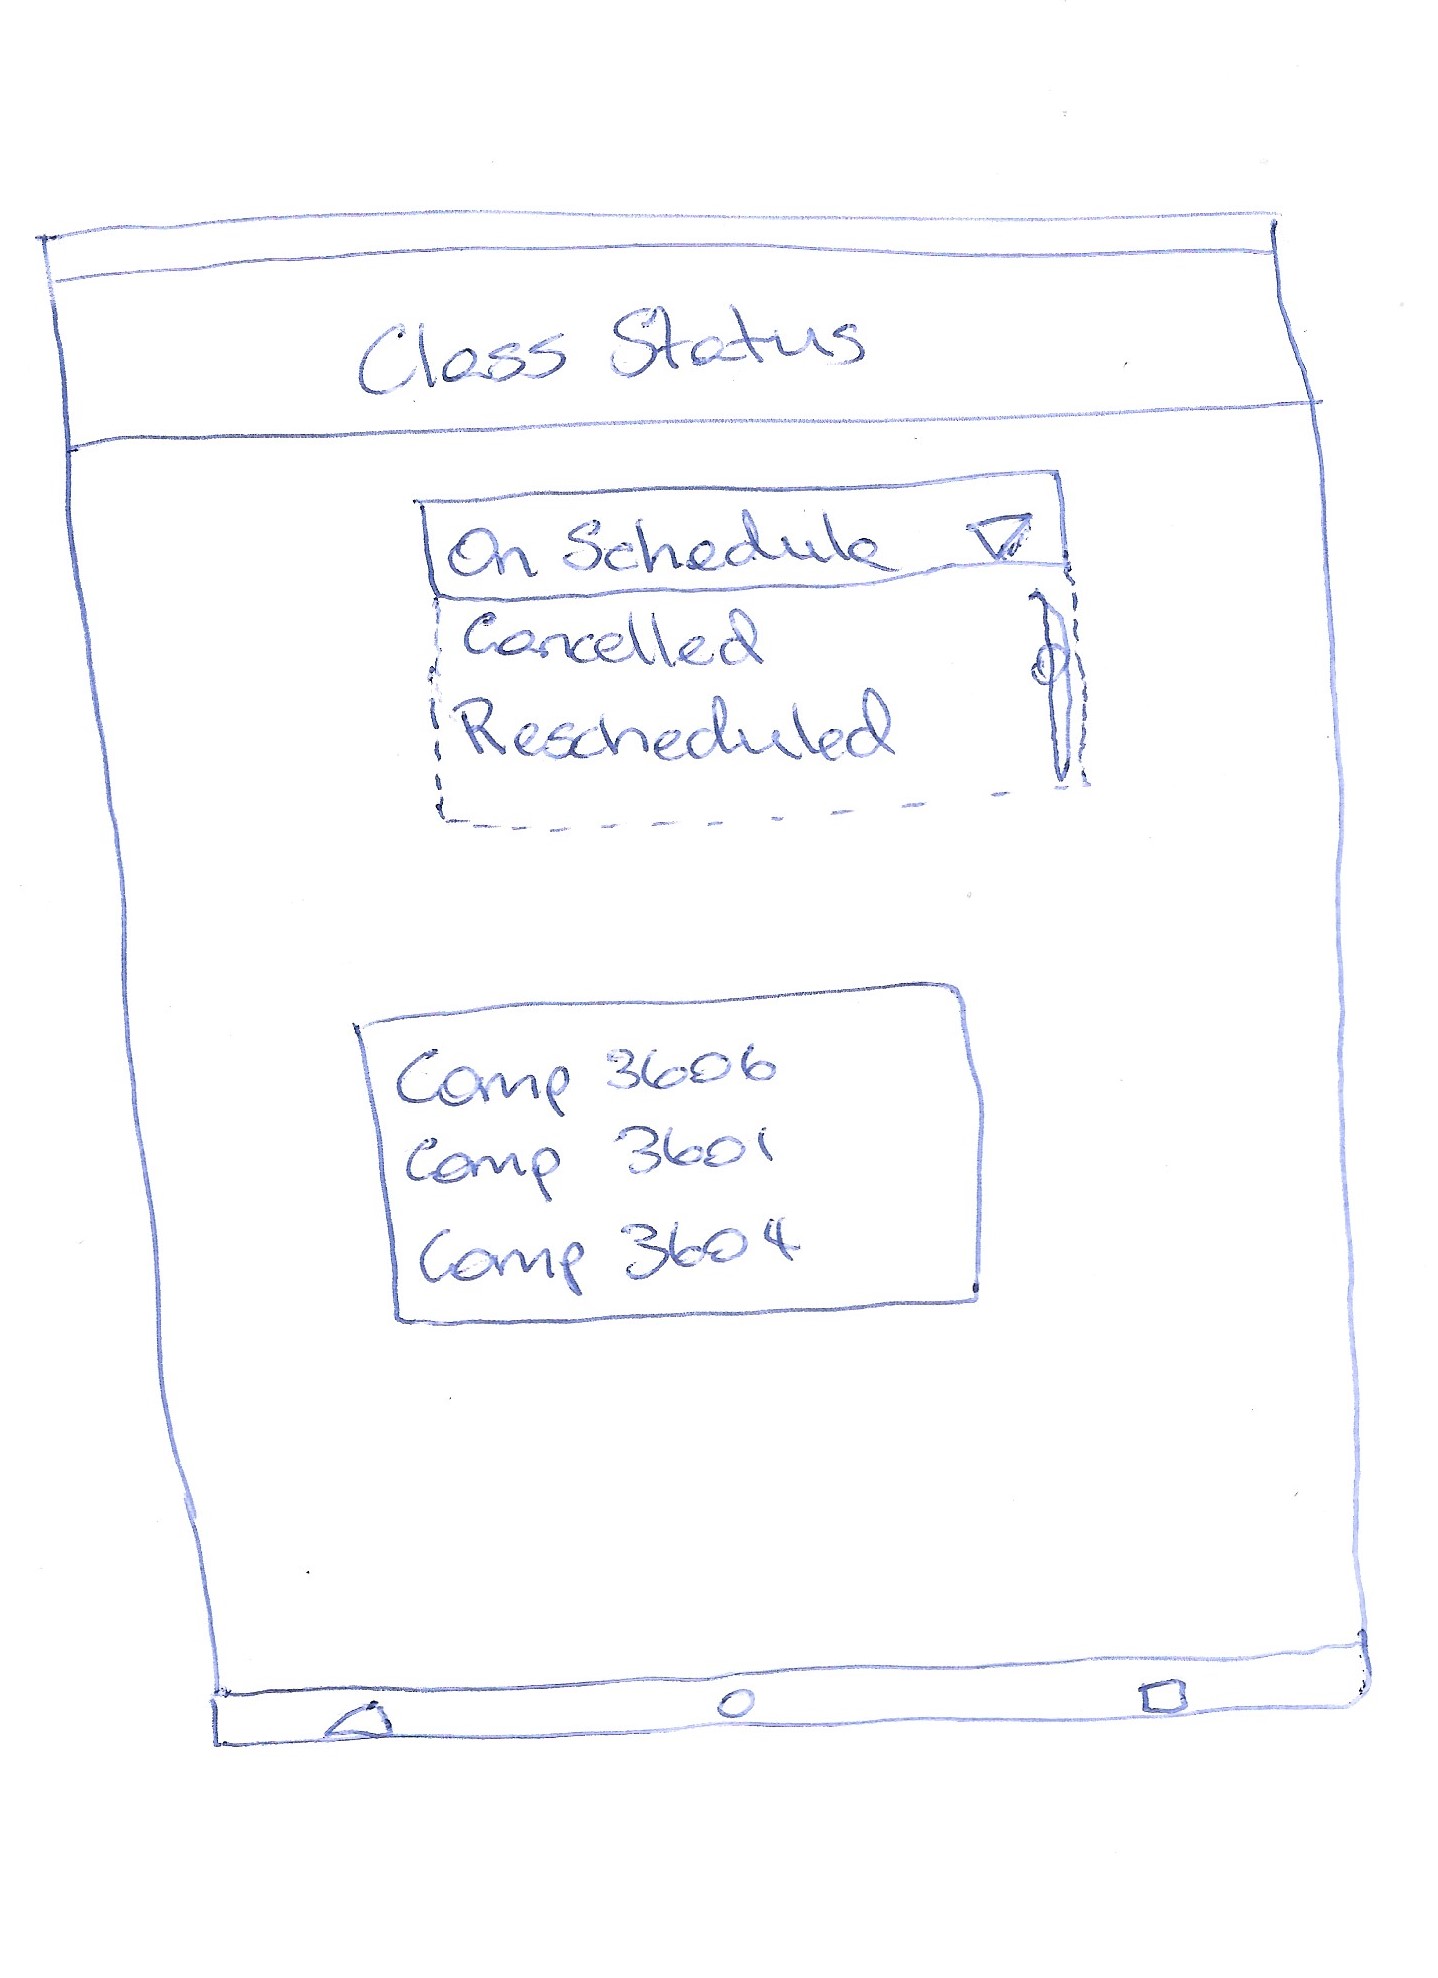 Class Status
On Schedule
Cancelled
Rescheduled
Comp 3606
Comp 3601
Comp 3604